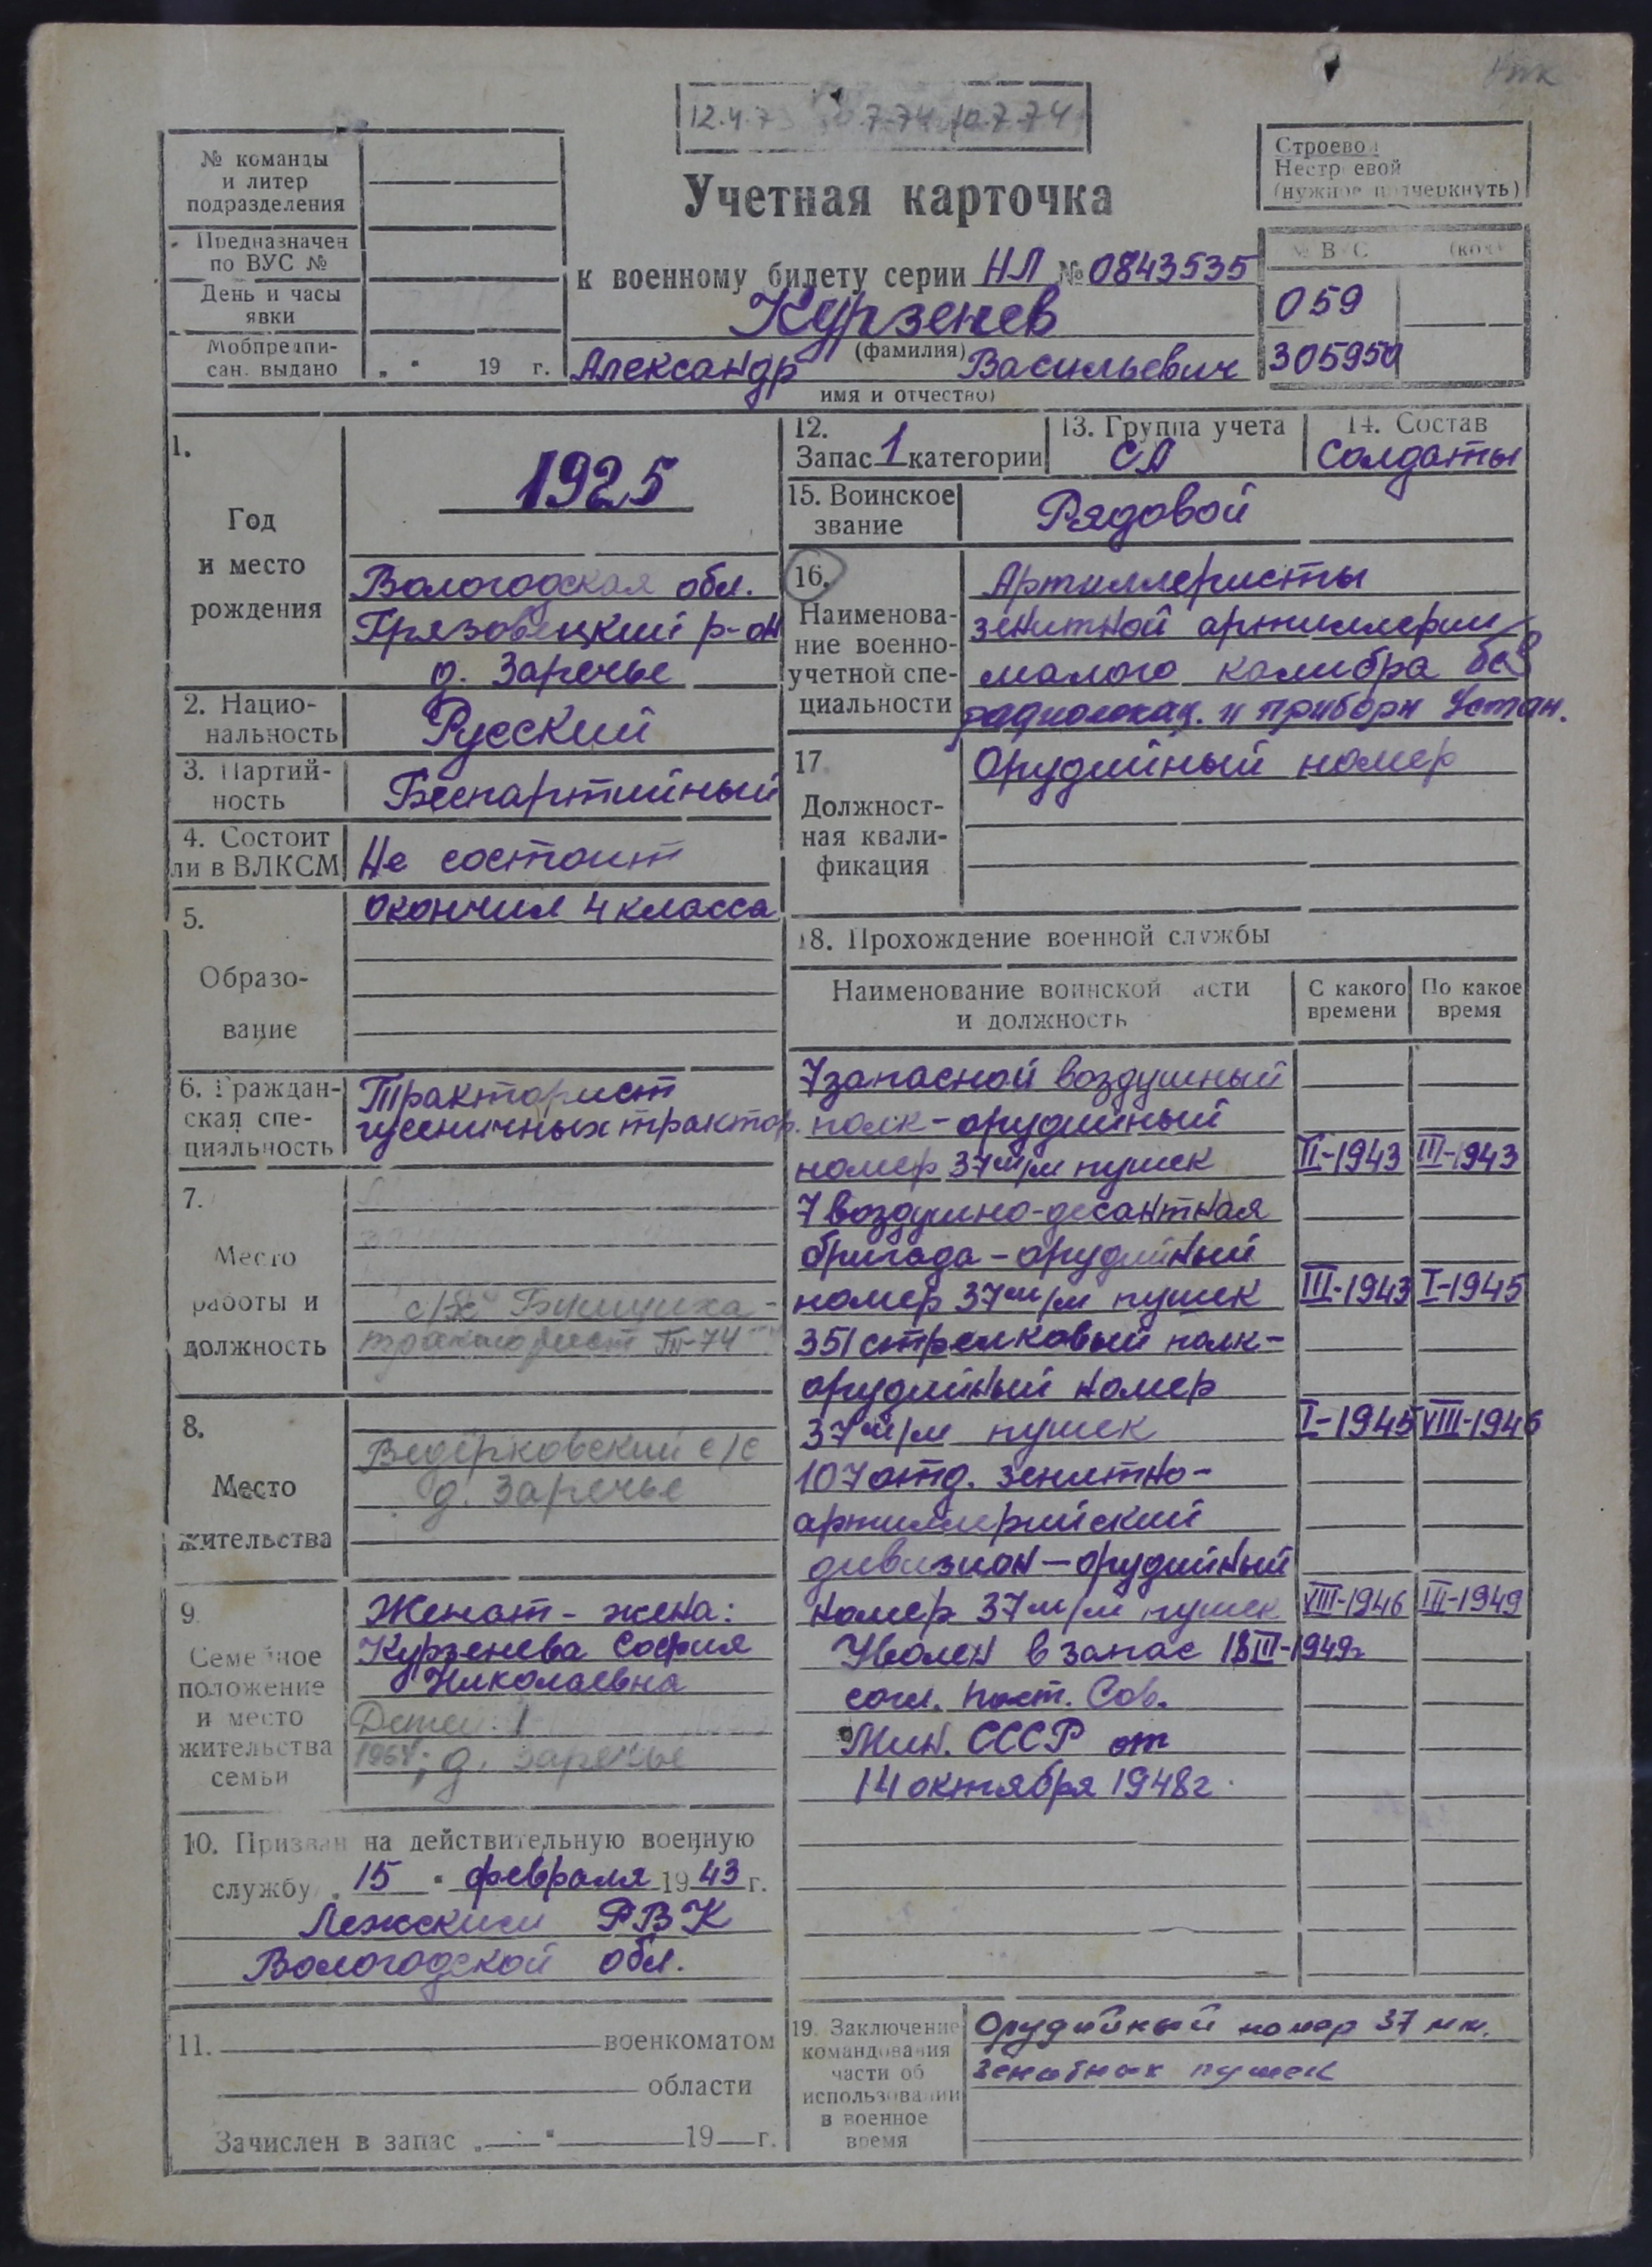 12.4.73 7-74 10.7.74
№ команды
и литер
подразделения
Предназначен
по ВУС №
День и часы
явки
Мобпредпи-
сан. выдано „ " 19 г.
Учетная карточка
к военному билету серии НЛ № 0843535
Курзенев
(фамилия)
Александр Васильевич
имя и отчество)
Строевой
Нестроевой
(нужное подчеркнуть)
№ ВУС (код)
059
305950
1.
Год
и место
рождения
1925
Вологодская обл.
Грязовецкий р-он
д. Заречье
2. Нацио-
нальность
Русский
3. Партий-
ность
Беспартийный
4. Состоит
ли в ВЛКСМ
Не состоит
5.
Образо-
вание
окончил 4 класса
6. Граждан-
ская спе-
циальность
Тракторист
гусеничных трактор.
7.
Место
работы и
должность
с/х
тракторист 74
8.
Место
жительства
Ведёрковский с/с
д. Заречье
9
Семейное
положение
и место
жительства
семьи
Женат - жена:
Курзенева София
Николаевна
Детей: 1
1964; д. Заречье
10. Призван на действительную военную
службу „ 15 " февраля 1943 г.
Лежским РВК
Вологодской обл.
11. военкоматом
области
Зачислен в запас „ " 19 г.
12.
Запас 1 категории
13. Группа учета
СА
14. Состав
Солдаты
15. Воинское
звание
Рядовой
16.
Наименова-
ние военно-
учетной спе-
циальности
Артиллеристы
зенитной артиллерии
малого калибра без
радиолокац. и приборн устан.
17.
Должност-
ная квали-
фикация
Орудийный номер
18. Прохождение военной службы
Наименование воинской части
и должность
С какого
времени
По какое
время
7 запасной воздушный
полк - орудийный
номер 37 м/м пушек II-1943 III-1943
7 воздушно-десантная
бригада - орудийный
номер 37 м/м пушек III-1943 I-1945
351 стрелковый полк -
орудийный номер
37 м/м пушек I-1945 VIII-1946
107 отд. зенитно-
артиллерийский
дивизион - орудийный
номер 37 м/м пушек VIII-1946 III-1949
Уволен в запас 18 III-1949г
согл. пост. Сов.
Мин. СССР от
14 октября 1948г.
19. Заключение
командования
части об
использовании
в военное
время
Орудийный номер 37 мм.
зенитных пушек